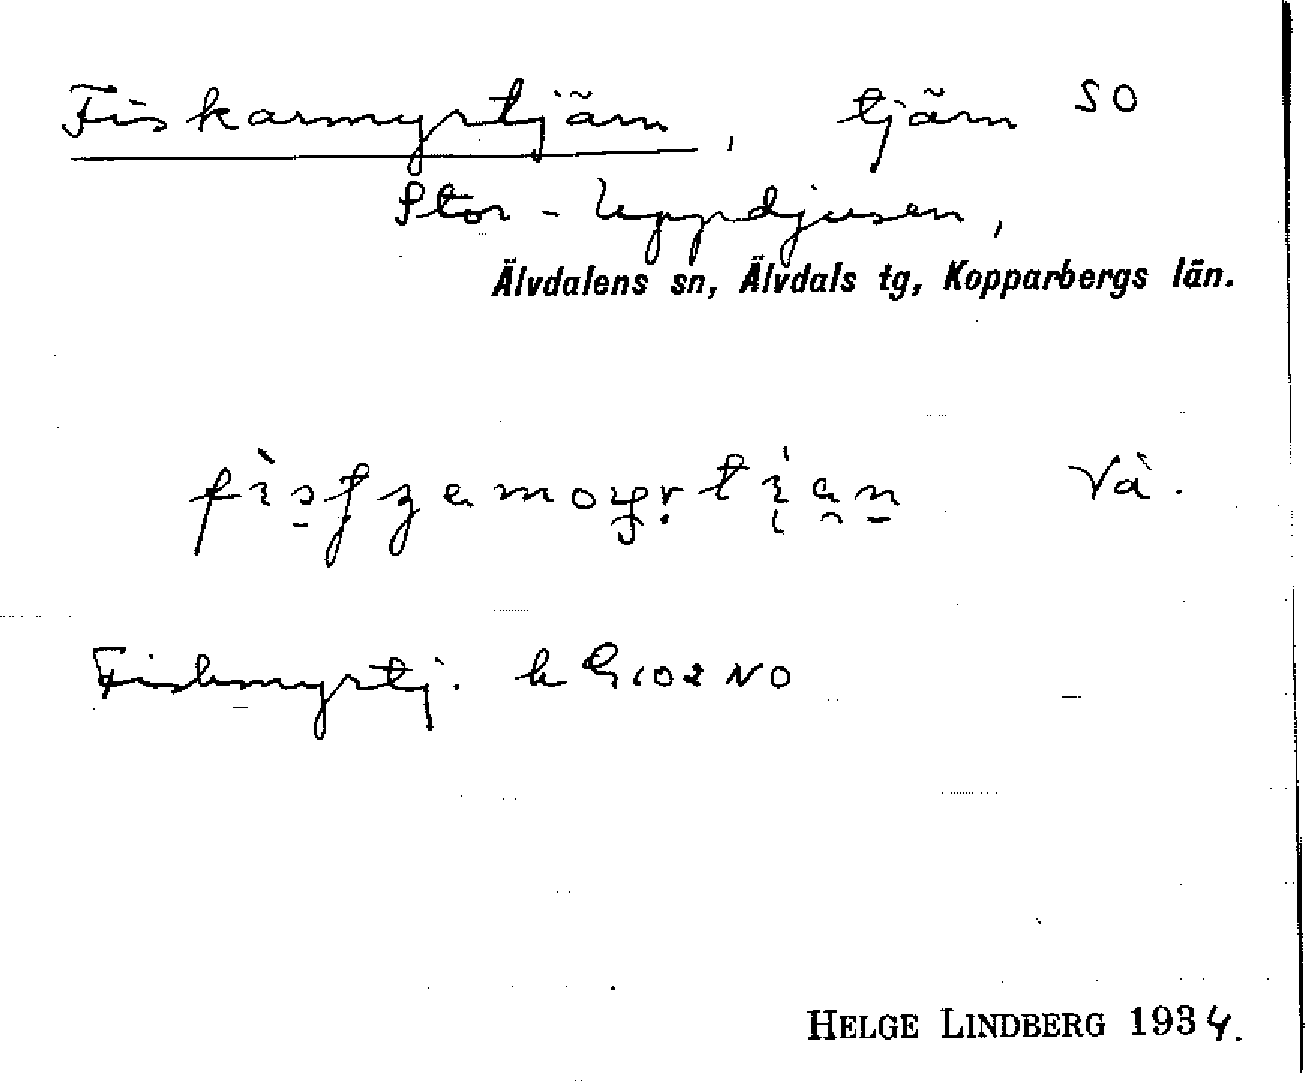 Fiskarmyrtjärn, tjärn SO
Stor-Uppdjusen,
Älvdalens sn, Älvdals tg, Kopparbergs län.
Va.
Fiskmyrtj. k G 102 NO
HELGE LINDBERG 1934.